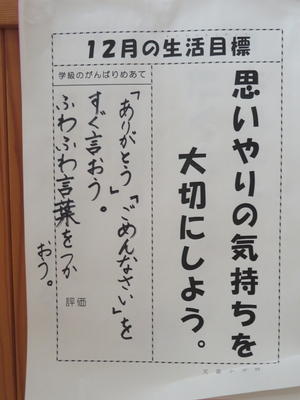 12月の生活目標
思いやりの気持ちを
大切にしよう。
学級のがんばりめあて
「ありがとう」「ごめんなさい」を
すぐ言おう。
ふわふわ言葉をつか
おう。
評価